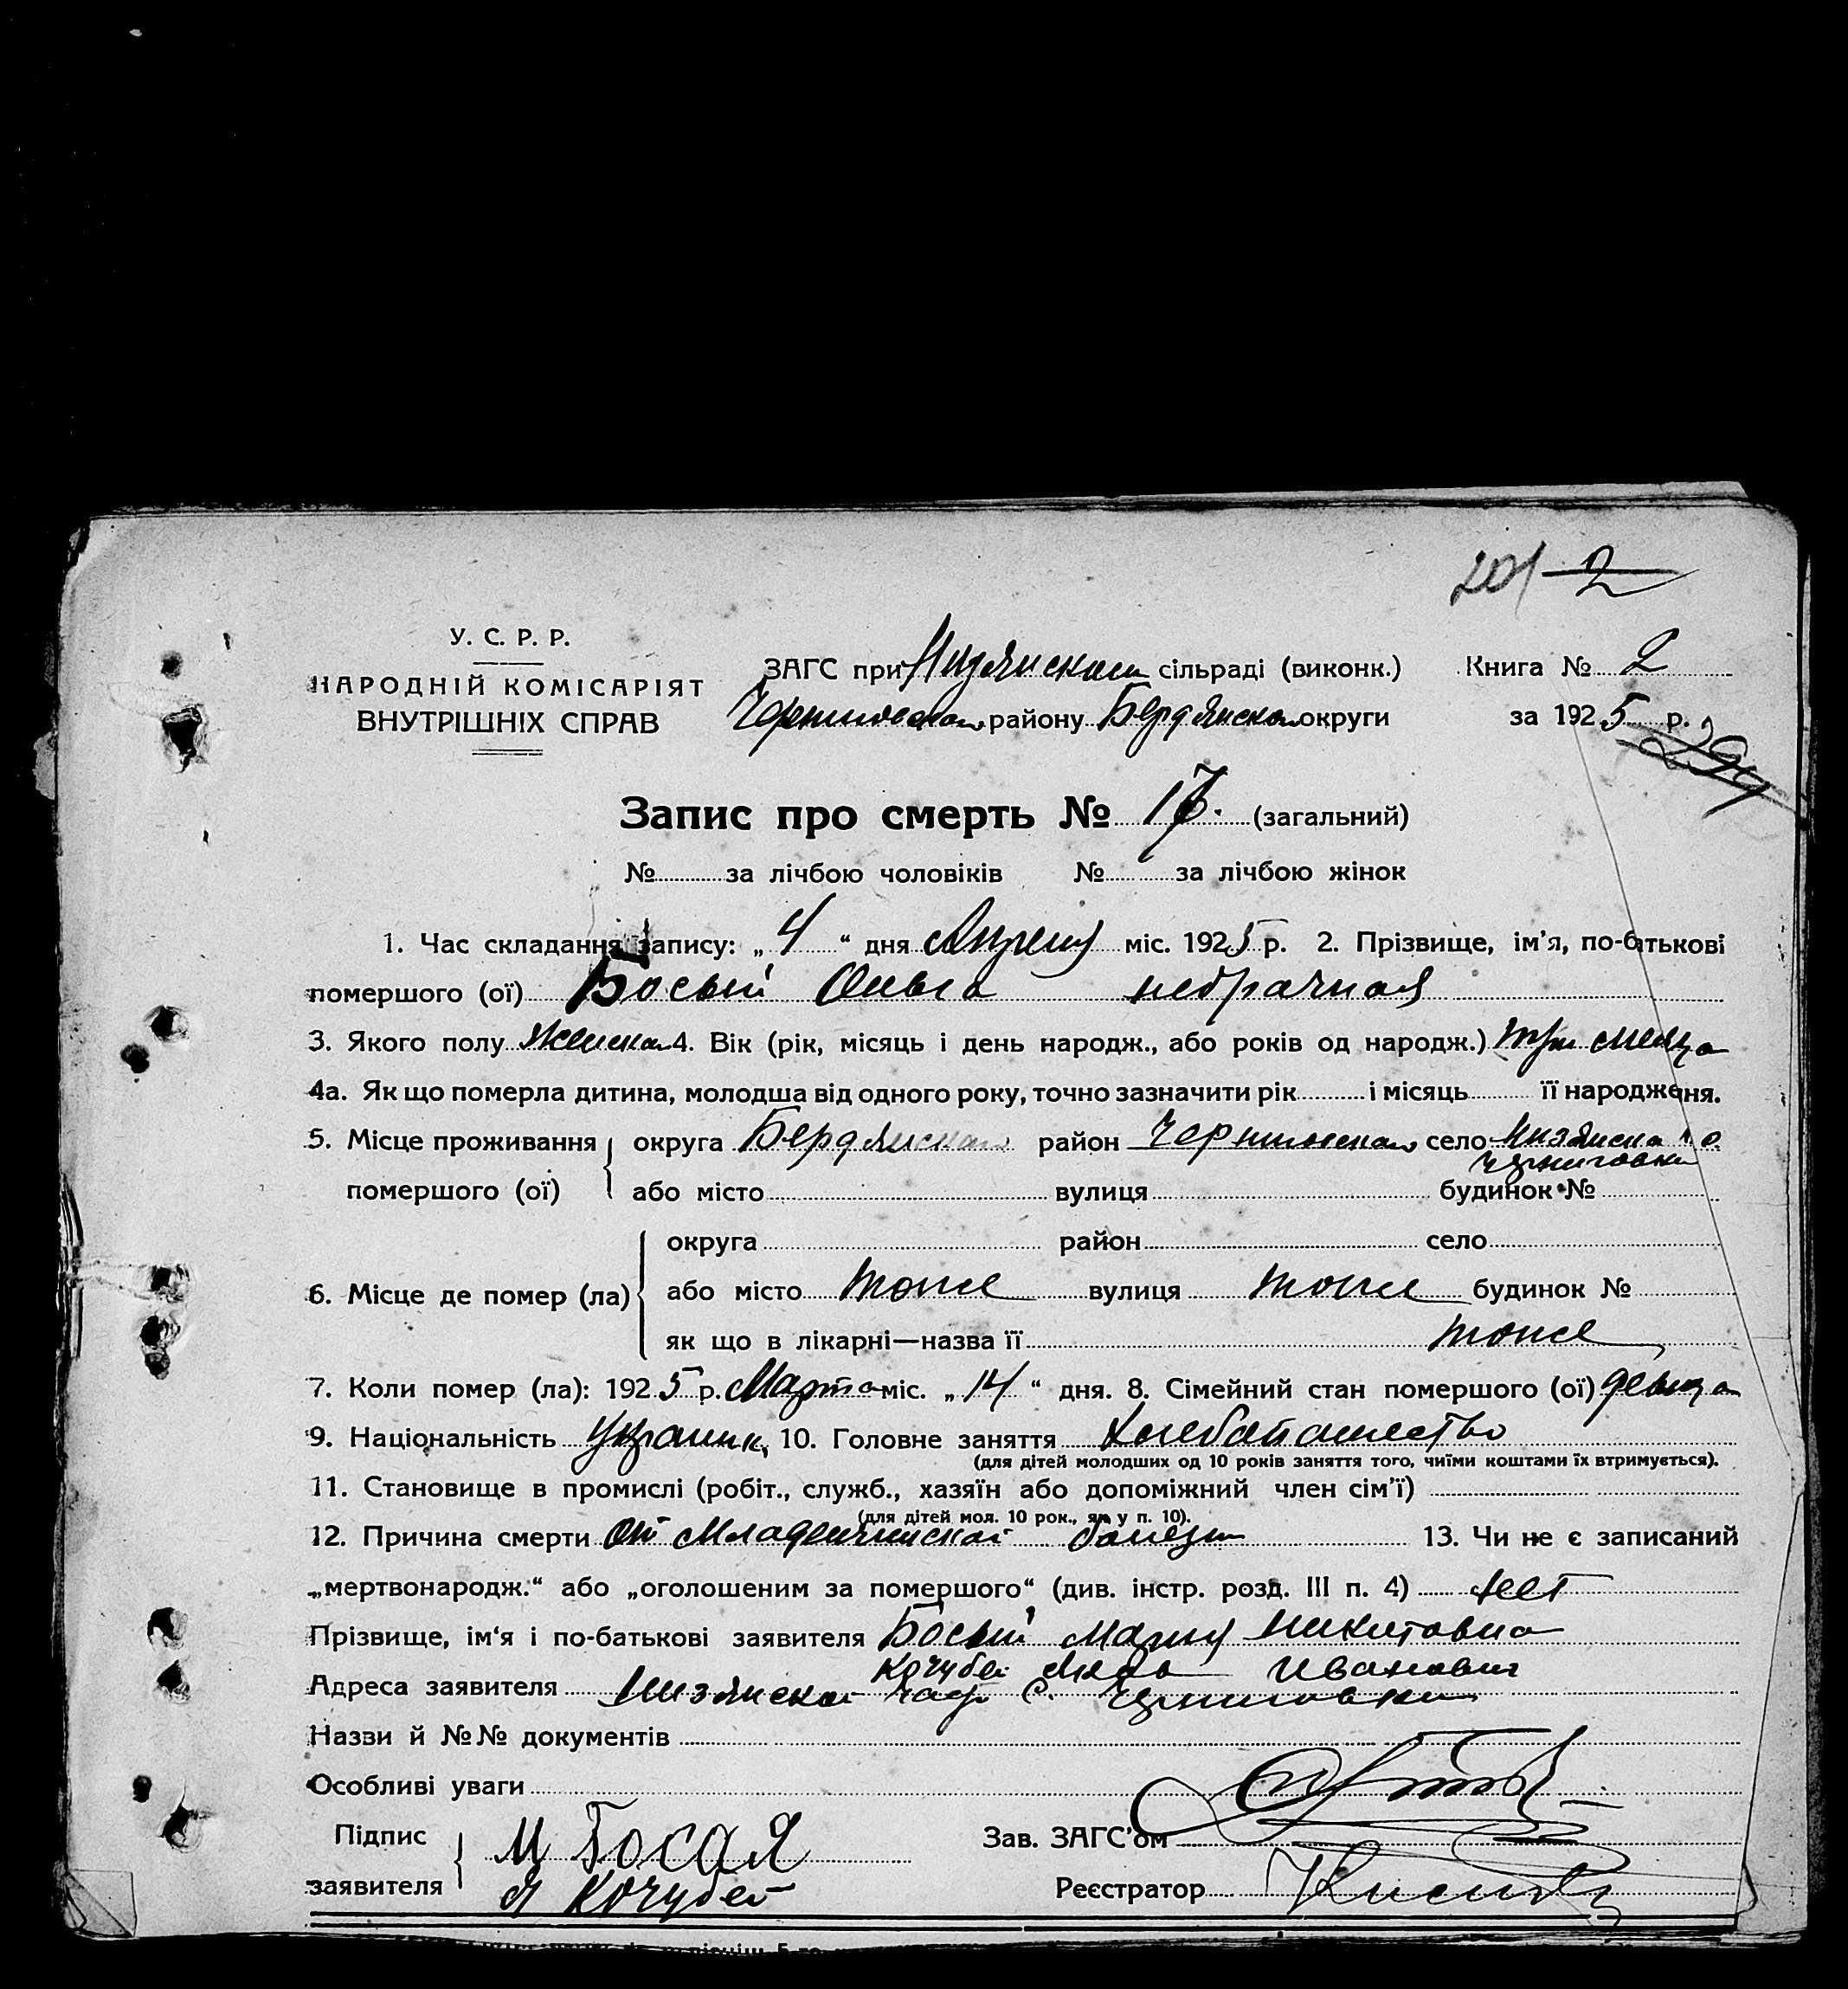 201 2
У. С. Р. Р.
НАРОДНІЙ КОМІСАРІЯТ
ВНУТРІШНІХ СПРАВ
ЗАГС при Низянском сільраді (виконк.)
Книга № 2
району Бердянском округи
за 1925 р.
Запис про смерть № 17. (загальний)
№ за лічбою чоловіків № за лічбою жінок
1. Час складання запису: „ 4 “ дня Апреля міс. 1925 р. 2. Прізвище, ім’я, по-батькові
помершого (ої) Босый Ольга небрачная
3. Якого полу Женска 4. Вік (рік, місяць і день народж., або років од народж.) три месяца
4а. Як що померла дитина, молодша від одного року, точно зазначити рік і місяць її народженя.
5. Місце проживання округа Бердянском район село
Черниговки
помершого (ої) або місто вулиця будинок №
округа район село
6. Місце де помер (ла) або місто тоже вулиця тоже будинок №
як що в лікарні—назва її тоже
7. Коли помер (ла): 1925 р. Марта міс. „ 14 “ дня. 8. Сімейний стан помершого (ої) девица
9. Національність Украинк. 10. Головне заняття Хлебопашество
(для дітей молодших од 10 років заняття того, чиїми коштами їх втримується).
11. Становище в промислі (робіт., служб., хазяїн або допоміжний член сім’ї)
(для дітей мол. 10 рок., як у п. 10).
12. Причина смерти От Младенчинской болезни 13. Чи не є записаний
„мертвонародж.“ або „оголошеним за помершого“ (див. інстр. розд. III п. 4) нет
Прізвище, ім‘я і по-батькові заявителя Босый Мария Никитовна
Кочубей Иванович
Адреса заявителя Низянской части с. Черниговки
Назви й №№ документів
Особливі уваги
Підпис
заявителя
М Босая
Я Кочубей
Зав. ЗАГС’ом
Реєстратор